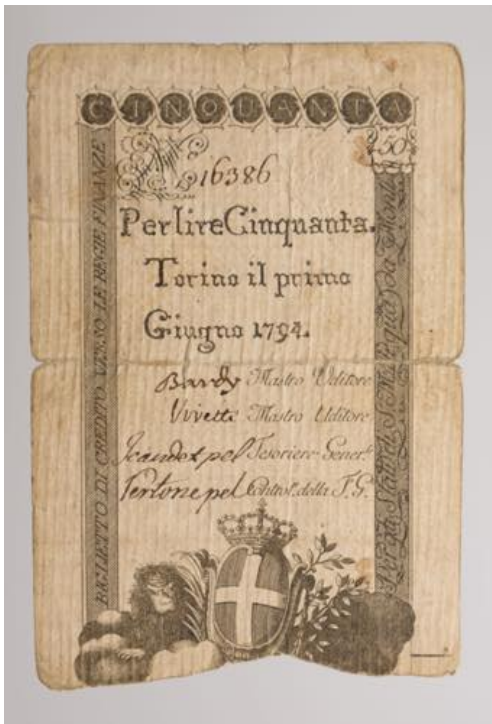 CINQUANTA
50
16386
Per lire Cinquanta.
Torino il primo
Giugno 1794.
Mastro Uditore
Vivetti Mastro Uditore
pel Tesoriere Gener.
Pertone pel Control. della T. G.
BIGLIETTO DI CREDITO VERSO LE REGIE FINANZE